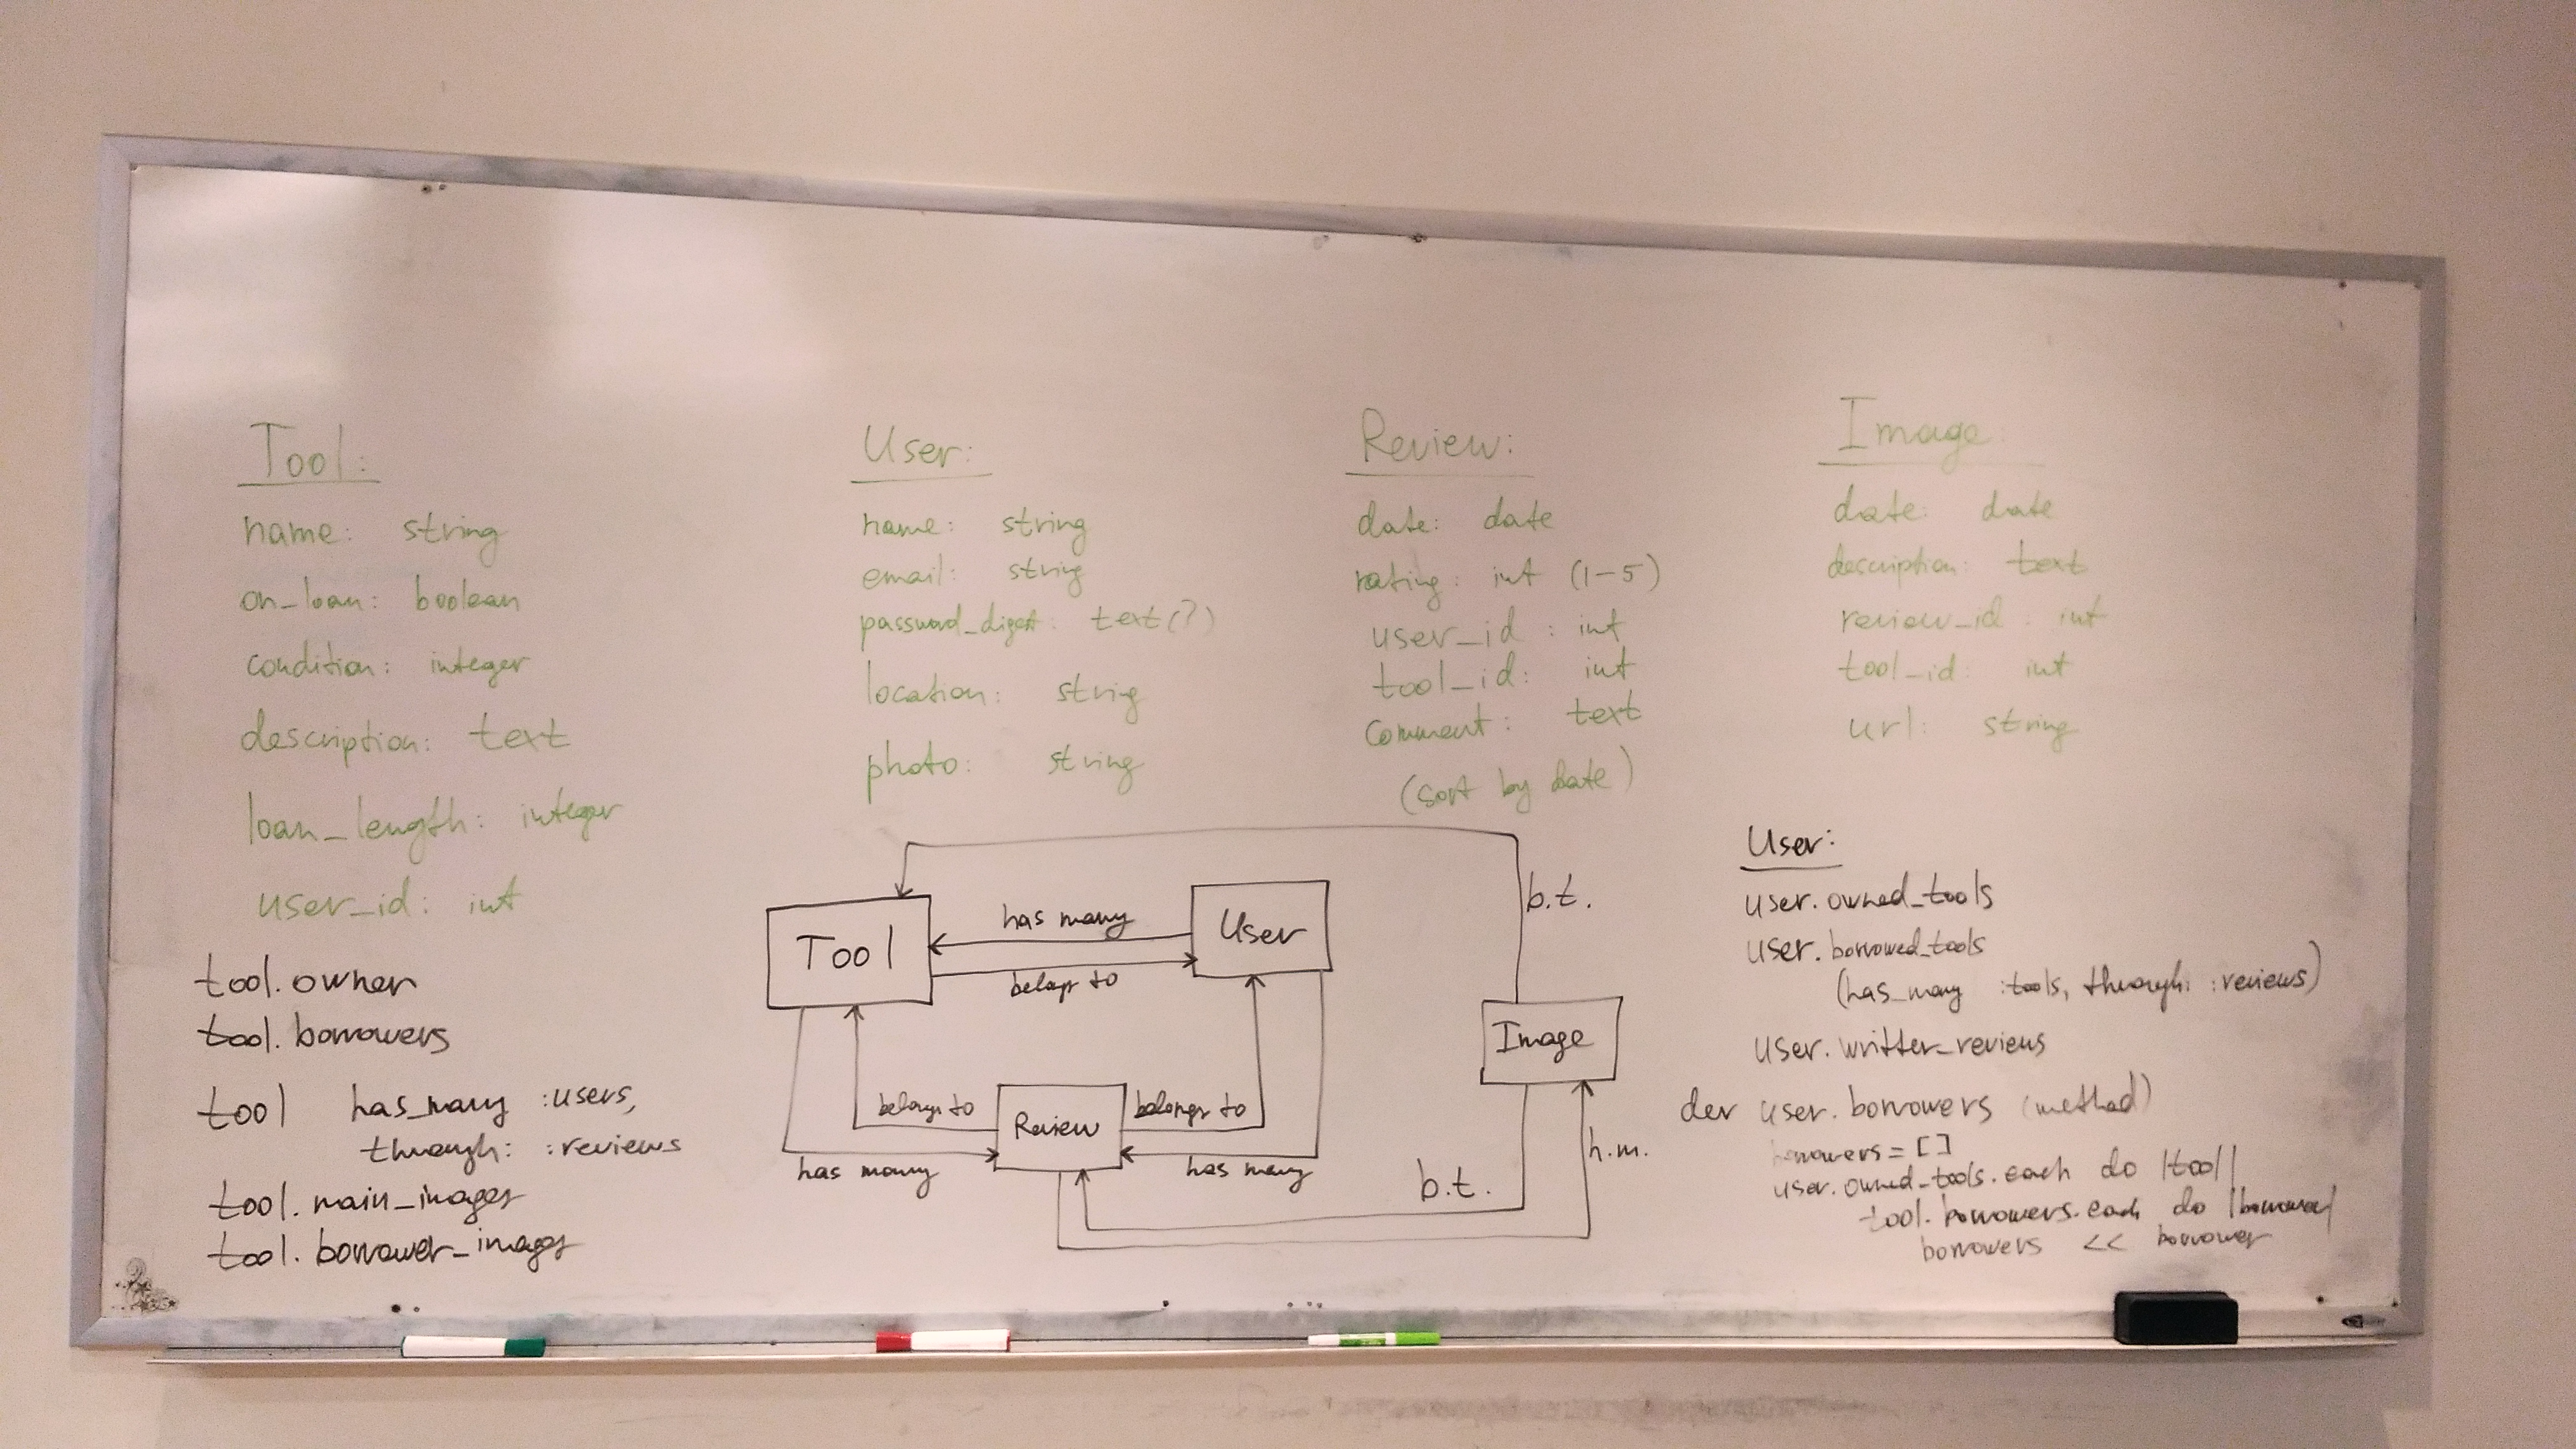 Tool:
name: string
on_loan: boolean
condition: integer
description: text
loan_length: integer
user_id: int
User:
name: string
email: string
password_digest: text(?)
location: string
photo: string
Review:
date: date
rating: int (1-5)
user_id: int
tool_id: int
comment: text
(sort by date)
Image:
date: date
description: text
review_id: int
tool_id: int
url: string
tool.owner
tool.borrowers
tool has_many :users,
through: :reviews
tool.main_images
tool.borrower_images
Tool
has many
User
belongs to
b.t.
Image
belongs to
Review
belongs to
has many
has many
b.t.
h.m.
User:
user.owned_tools
user.borrowed_tools
(has_many :tools, through: :reviews)
user.written_reviews
der user.borrowers (method)
borrowers = []
user.owned_tools.each do |tool|
tool.borrowers.each do |borrower|
borrowers << borrower